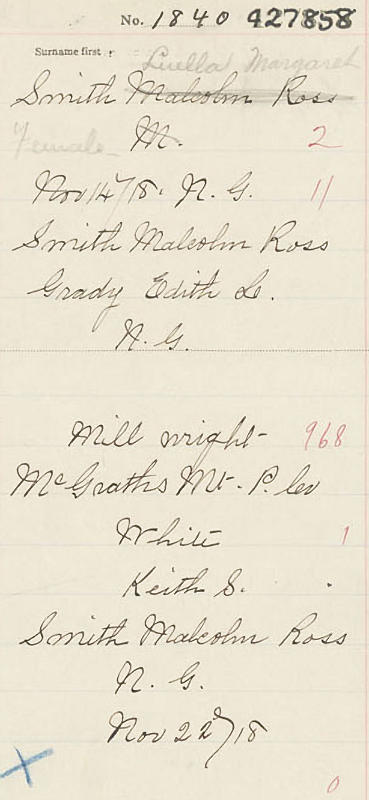 No. 1840 427858
Surname first
Luella Margaret
Smith Malcolm Ross
Female M. 2
Nov 14/18. N. G. 11
Smith Malcolm Ross
Grady Edith L.
N. G.
Mill wright 968
McGraths Mt. P. Co
White 1
Keith S.
Smith Malcolm Ross
N. G.
Nov 22d/18
0